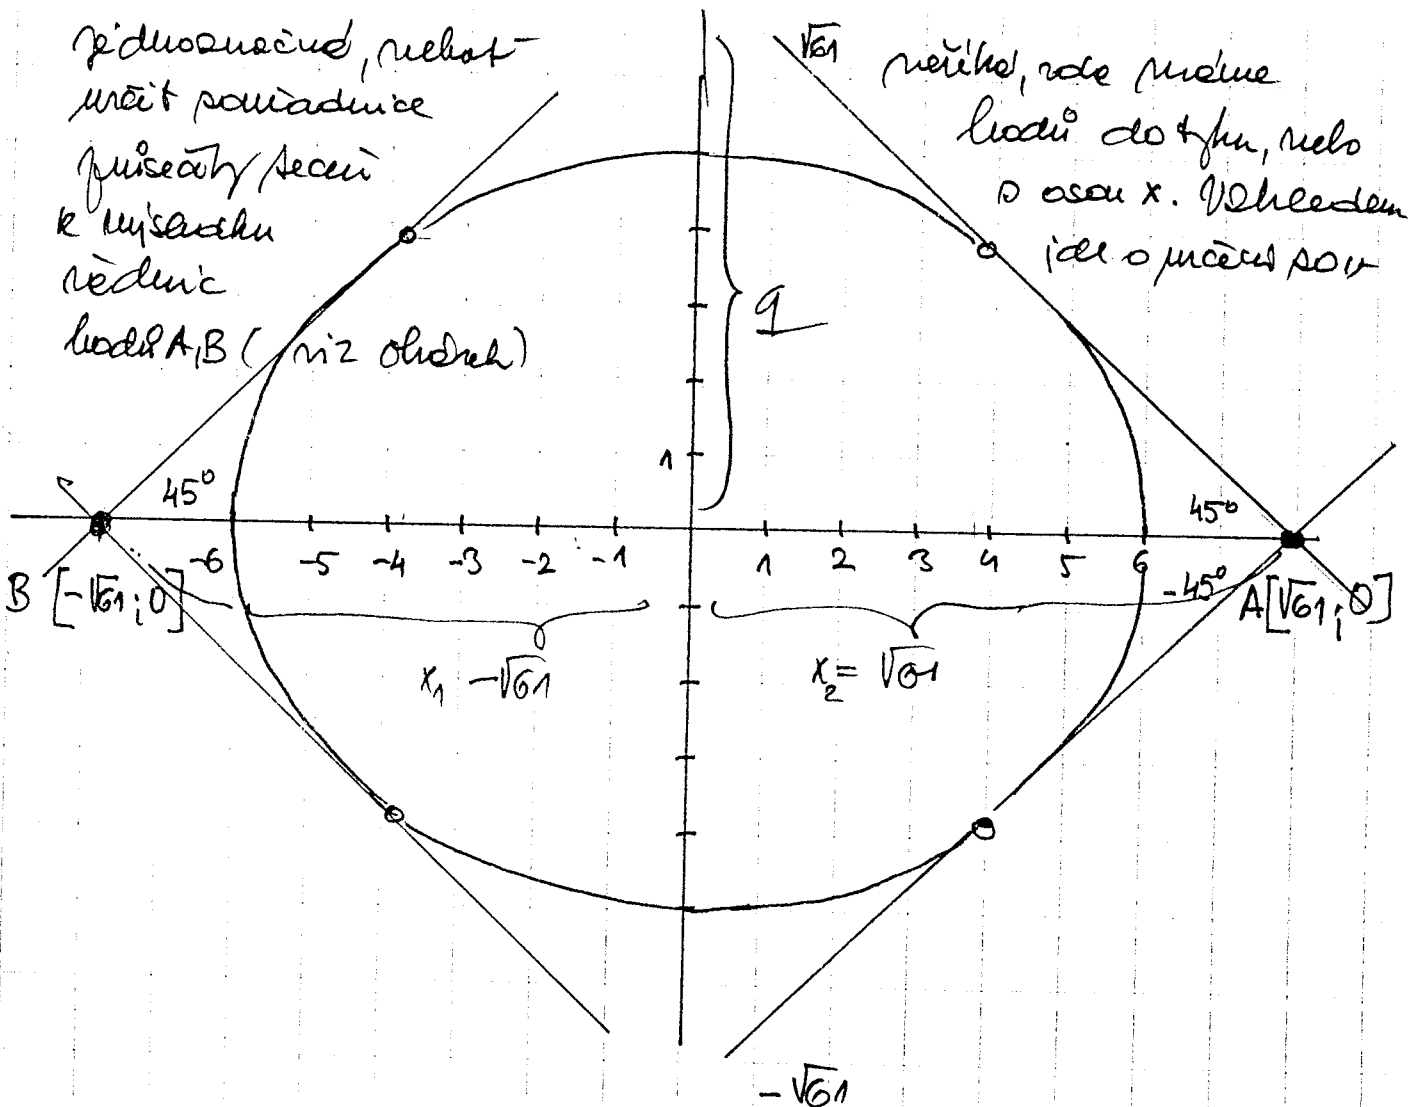 jednoznačné, neboť
určit souřadnice
průsečíky tečen
k výsledku
řednic
bodů A,B ( viz obrázek)
√61
neříká, zda máme
bodů dotyku, nebo
s osou x. Vzhledem
jde o určení sou
q
1
45°
45°
-6 -5 -4 -3 -2 -1 1 2 3 4 5 6
-45°
B [-√61; 0]
A[√61; 0]
x₁ -√61
x₂= √61
-√61